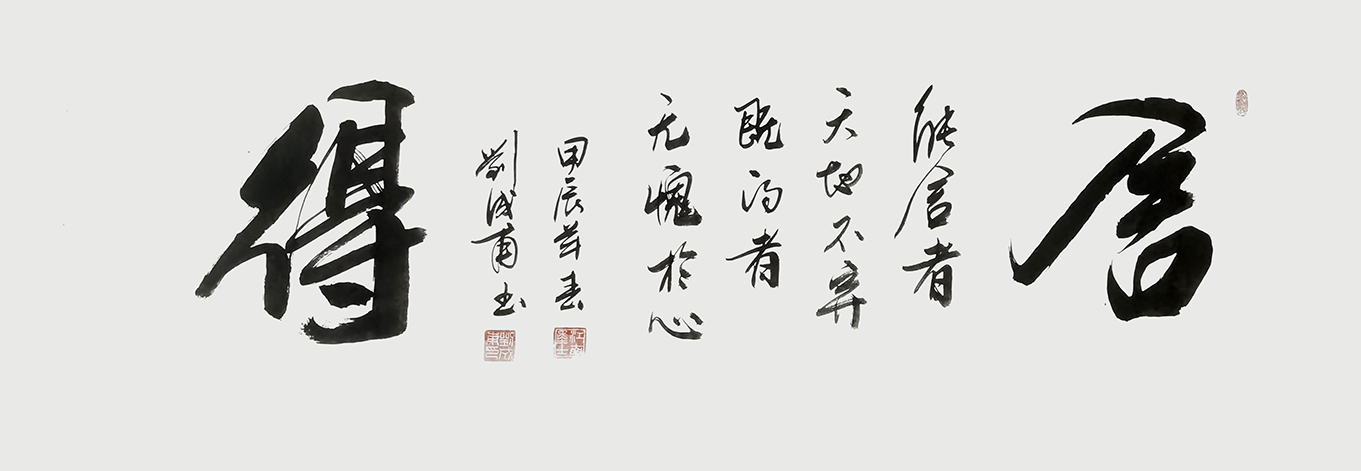 舍
能舍者
天地不弃
既得者
无愧於心
甲辰年春
劉成甫书
得